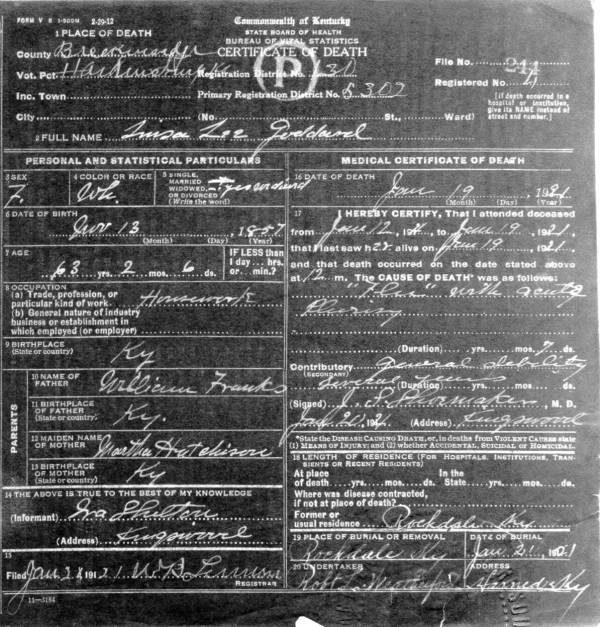 FORM V S 1-500M 2-29-12
Commonwealth of Kentucky
STATE BOARD OF HEALTH
BUREAU OF VITAL STATISTICS
CERTIFICATE OF DEATH
1 PLACE OF DEATH
County Breckinridge
Vot. Pct Registration District No. 30
Inc. Town Primary Registration District No. 5302
City (No. St., Ward)
File No.
Registered No.
(If death occurred in a hospital or institution, give its NAME instead of street and number.)
2 FULL NAME Lee Goddard
PERSONAL AND STATISTICAL PARTICULARS
3 SEX
F.
4 COLOR OR RACE
Wh.
5 SINGLE, MARRIED WIDOWED, OR DIVORCED (Write the word)
6 DATE OF BIRTH
Nov 13, 1857
(Month) (Day) (Year)
7 AGE
63 yrs. 2 mos. 6 ds.
IF LESS than
1 day... hrs.
or... min.?
8 OCCUPATION
(a) Trade, profession, or particular kind of work Housework
(b) General nature of industry
business or establishment in
which employed (or employer)
9 BIRTHPLACE
(State or country) Ky
PARENTS
10 NAME OF FATHER William Franks
11 BIRTHPLACE OF FATHER (State or country) Ky.
12 MAIDEN NAME OF MOTHER Martha Hutchison
13 BIRTHPLACE OF MOTHER (State or country) Ky
14 THE ABOVE IS TRUE TO THE BEST OF MY KNOWLEDGE
(Informant) Ira Shelton
(Address)
15
Filed Jan 191
REGISTRAR
11-3184
MEDICAL CERTIFICATE OF DEATH
16 DATE OF DEATH
Jan 19, 1921
(Month) (Day) (Year)
17 I HEREBY CERTIFY, That I attended deceased
from Jan 12, to Jan 19, 1921,
that I last saw alive on Jan 19, 1921,
and that death occurred on the date stated above
at 12 m. The CAUSE OF DEATH* was as follows:
"Flu" with acute
Pleurisy
(Duration) yrs. mos. 7 ds.
Contributory general debility
(SECONDARY)
several years (Duration) yrs. mos. ds.
(Signed) Shoemaker, M. D.
(Address)
*State the DISEASE CAUSING DEATH, or, in deaths from VIOLENT CAUSES state
(1) MEANS OF INJURY; and (2) whether ACCIDENTAL, SUICIDAL or HOMICIDAL.
18 LENGTH OF RESIDENCE (FOR HOSPITALS, INSTITUTIONS, TRANSIENTS OR RECENT RESIDENTS)
At place In the
of death yrs. mos. ds. State yrs. mos. ds.
Where was disease contracted,
if not at place of death?
Former or
usual residence Rockdale Ky
19 PLACE OF BURIAL OR REMOVAL
Rockdale Ky
DATE OF BURIAL
Jan 21, 1921
20 UNDERTAKER
ADDRESS
Harned Ky